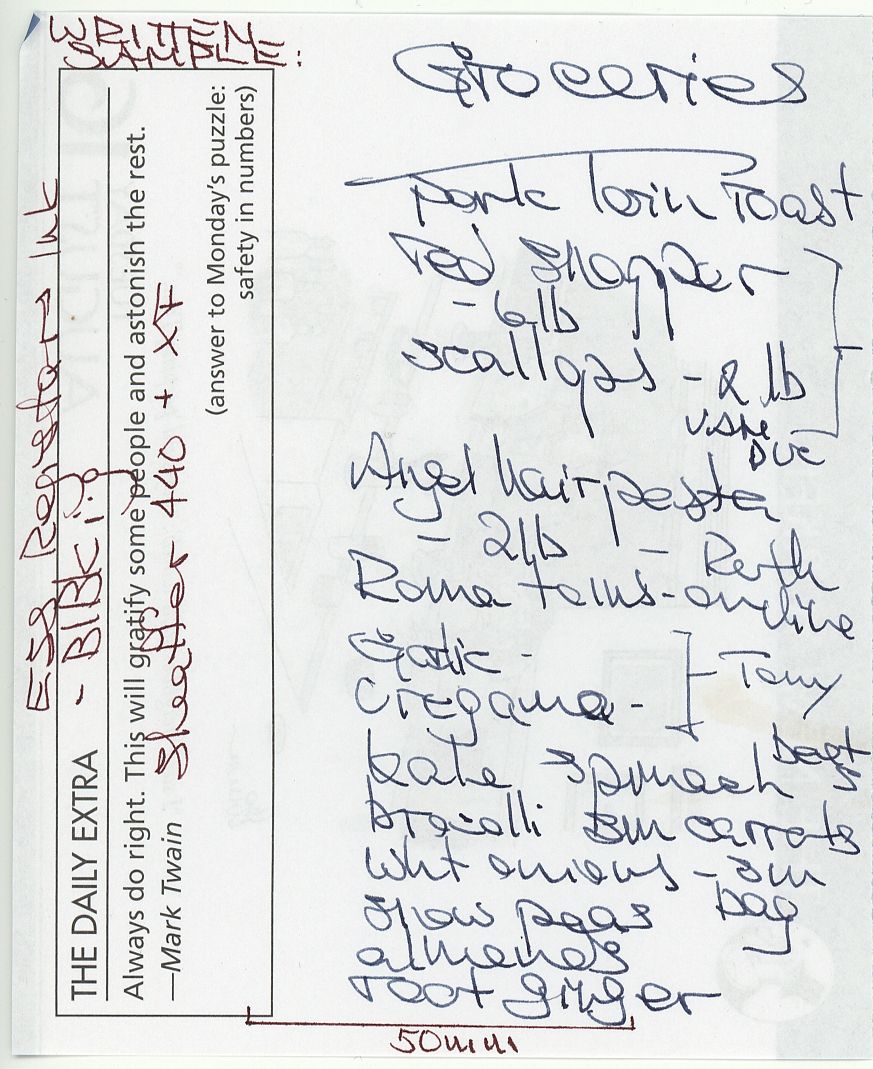 WRITTEN
SAMPLE:
Groceries
Pork loin roast
Red Snapper
- 6 lb
scallops - 2 lb
Angel hair pasta
- 2 lb -
Roma toms -
Garlic -
Oregano -
Tony
kale spinach
bags
brocolli sm carrots
wht onions - sm
bag
snow peas
almonds
root ginger
50mm
ESS Registrars Ink
Sheaffer 440 + XF
THE DAILY EXTRA
Always do right. This will gratify some people and astonish the rest.
—Mark Twain
(answer to Monday's puzzle:
safety in numbers)